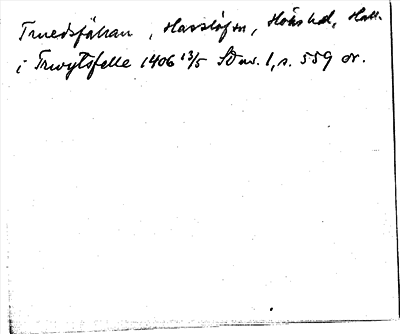 Truedsfälan, Havslöfsn, Höks hd, Hall.
i Trwytsfelle 1406 13/5 SD nr. 1, s. 559 or.